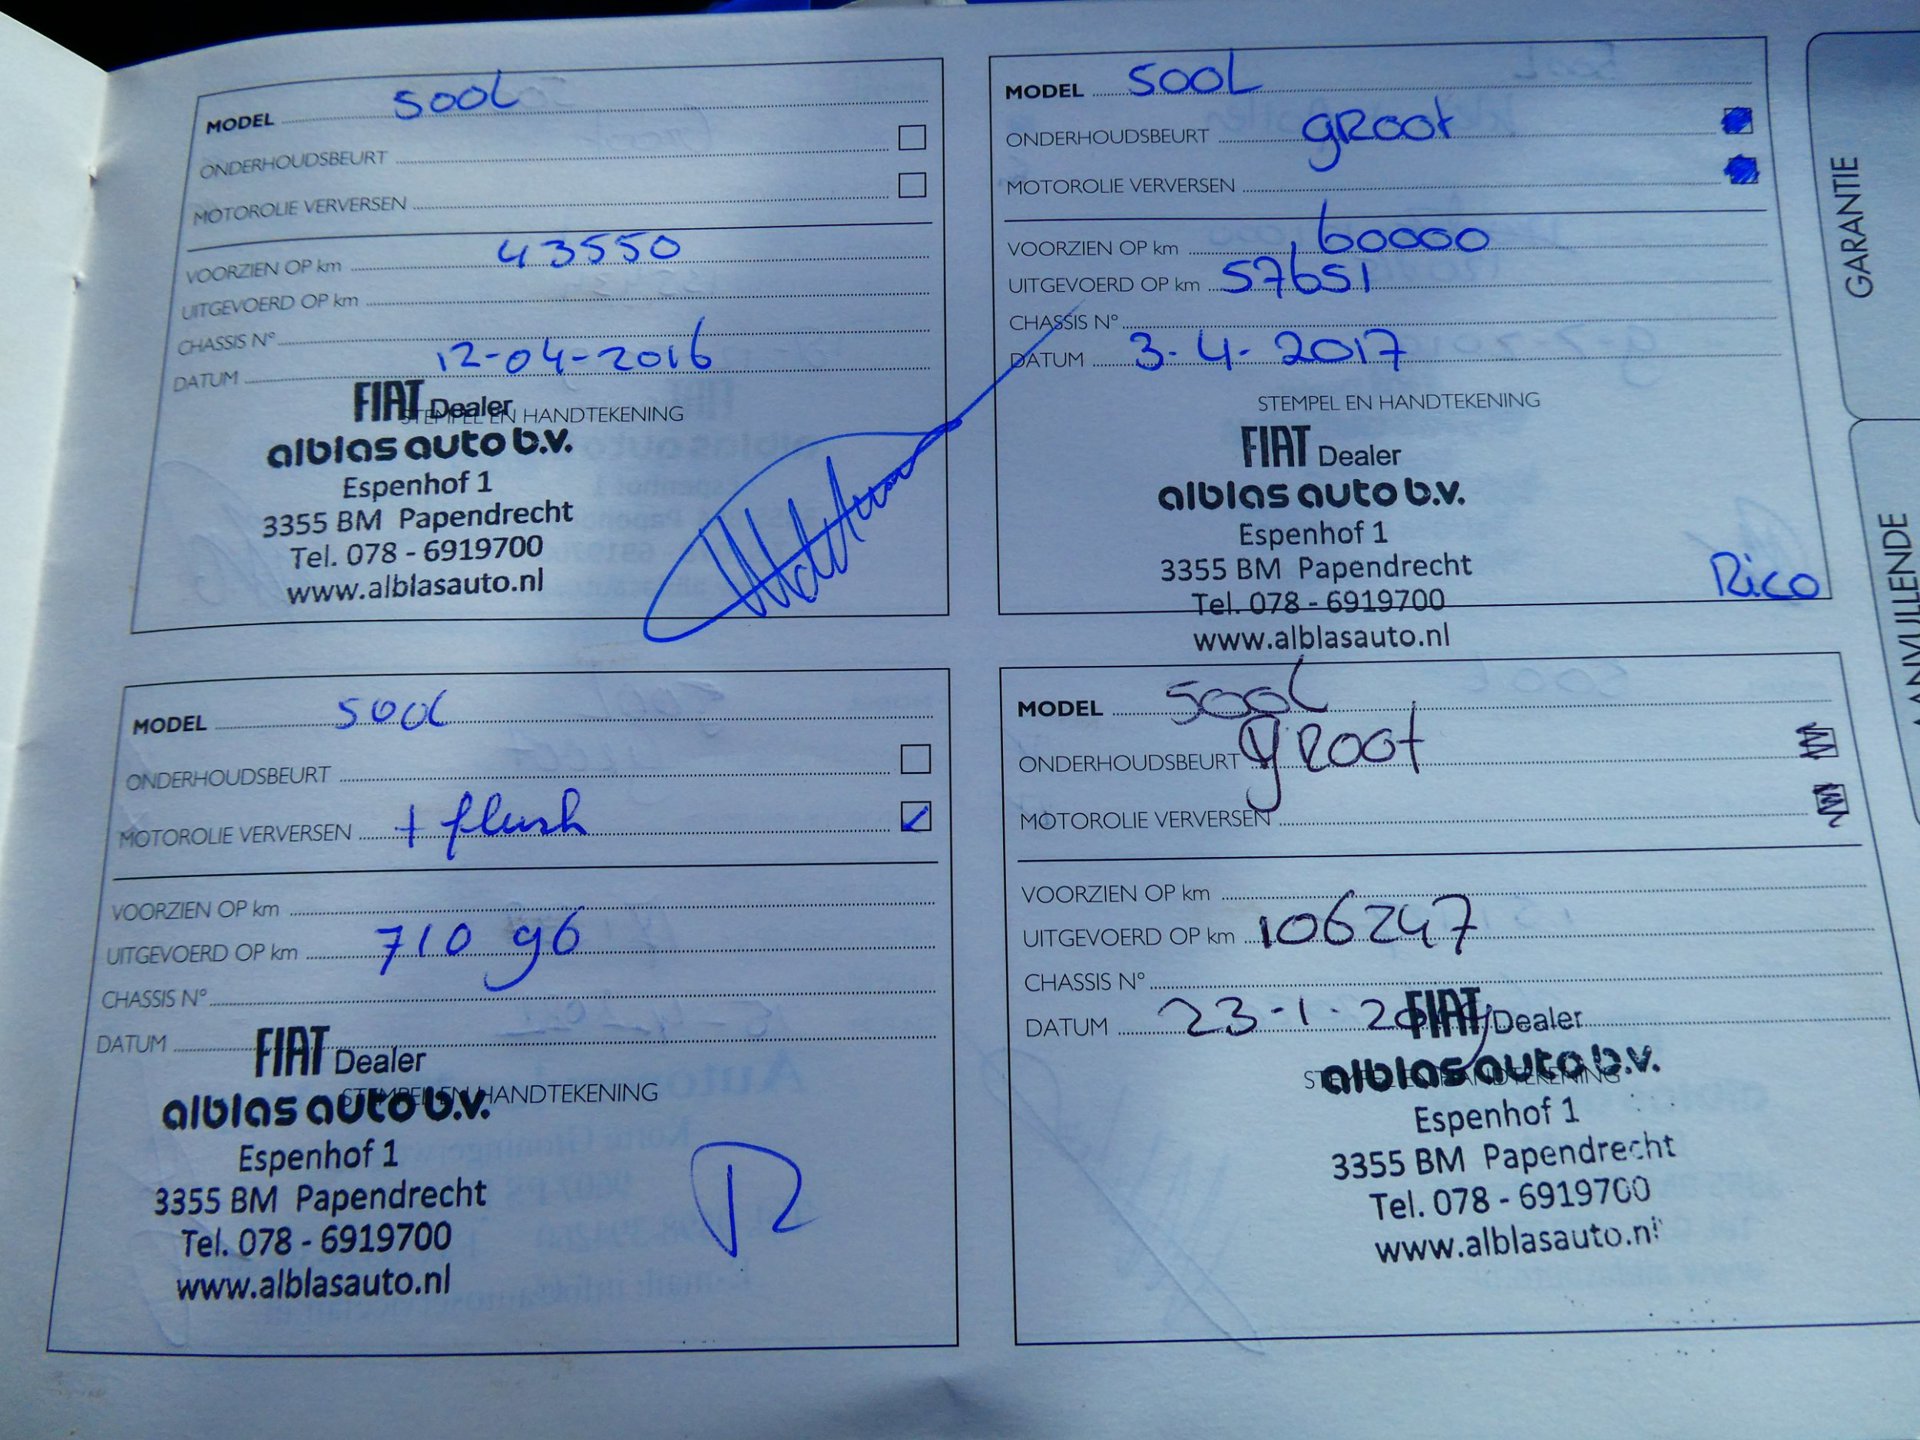 MODEL 500L
ONDERHOUDSBEURT
MOTOROLIE VERVERSEN
VOORZIEN OP km 43550
UITGEVOERD OP km
CHASSIS N°
DATUM 12-04-2016
STEMPEL EN HANDTEKENING
FIAT Dealer
alblas auto b.v.
Espenhof 1
3355 BM Papendrecht
Tel. 078 - 6919700
www.alblasauto.nl
MODEL 500L
ONDERHOUDSBEURT gROOt
MOTOROLIE VERVERSEN
VOORZIEN OP km 60000
UITGEVOERD OP km 57651
CHASSIS N°
DATUM 3-4-2017
STEMPEL EN HANDTEKENING
FIAT Dealer
alblas auto b.v.
Espenhof 1
3355 BM Papendrecht
Rico
Tel. 078 - 6919700
www.alblasauto.nl
MODEL 500L
ONDERHOUDSBEURT
MOTOROLIE VERVERSEN + flush
VOORZIEN OP km
UITGEVOERD OP km 71096
CHASSIS N°
DATUM
FIAT Dealer
STEMPEL EN HANDTEKENING
alblas auto b.v.
Espenhof 1
3355 BM Papendrecht
Tel. 078 - 6919700
www.alblasauto.nl
MODEL 500L
ONDERHOUDSBEURT gROOt
MOTOROLIE VERVERSEN
VOORZIEN OP km
UITGEVOERD OP km 106247
CHASSIS N°
DATUM 23-1-
FIAT Dealer
STEMPEL EN HANDTEKENING
alblas auto b.v.
Espenhof 1
3355 BM Papendrecht
Tel. 078 - 6919700
www.alblasauto.nl
GARANTIE
AANVULLENDE